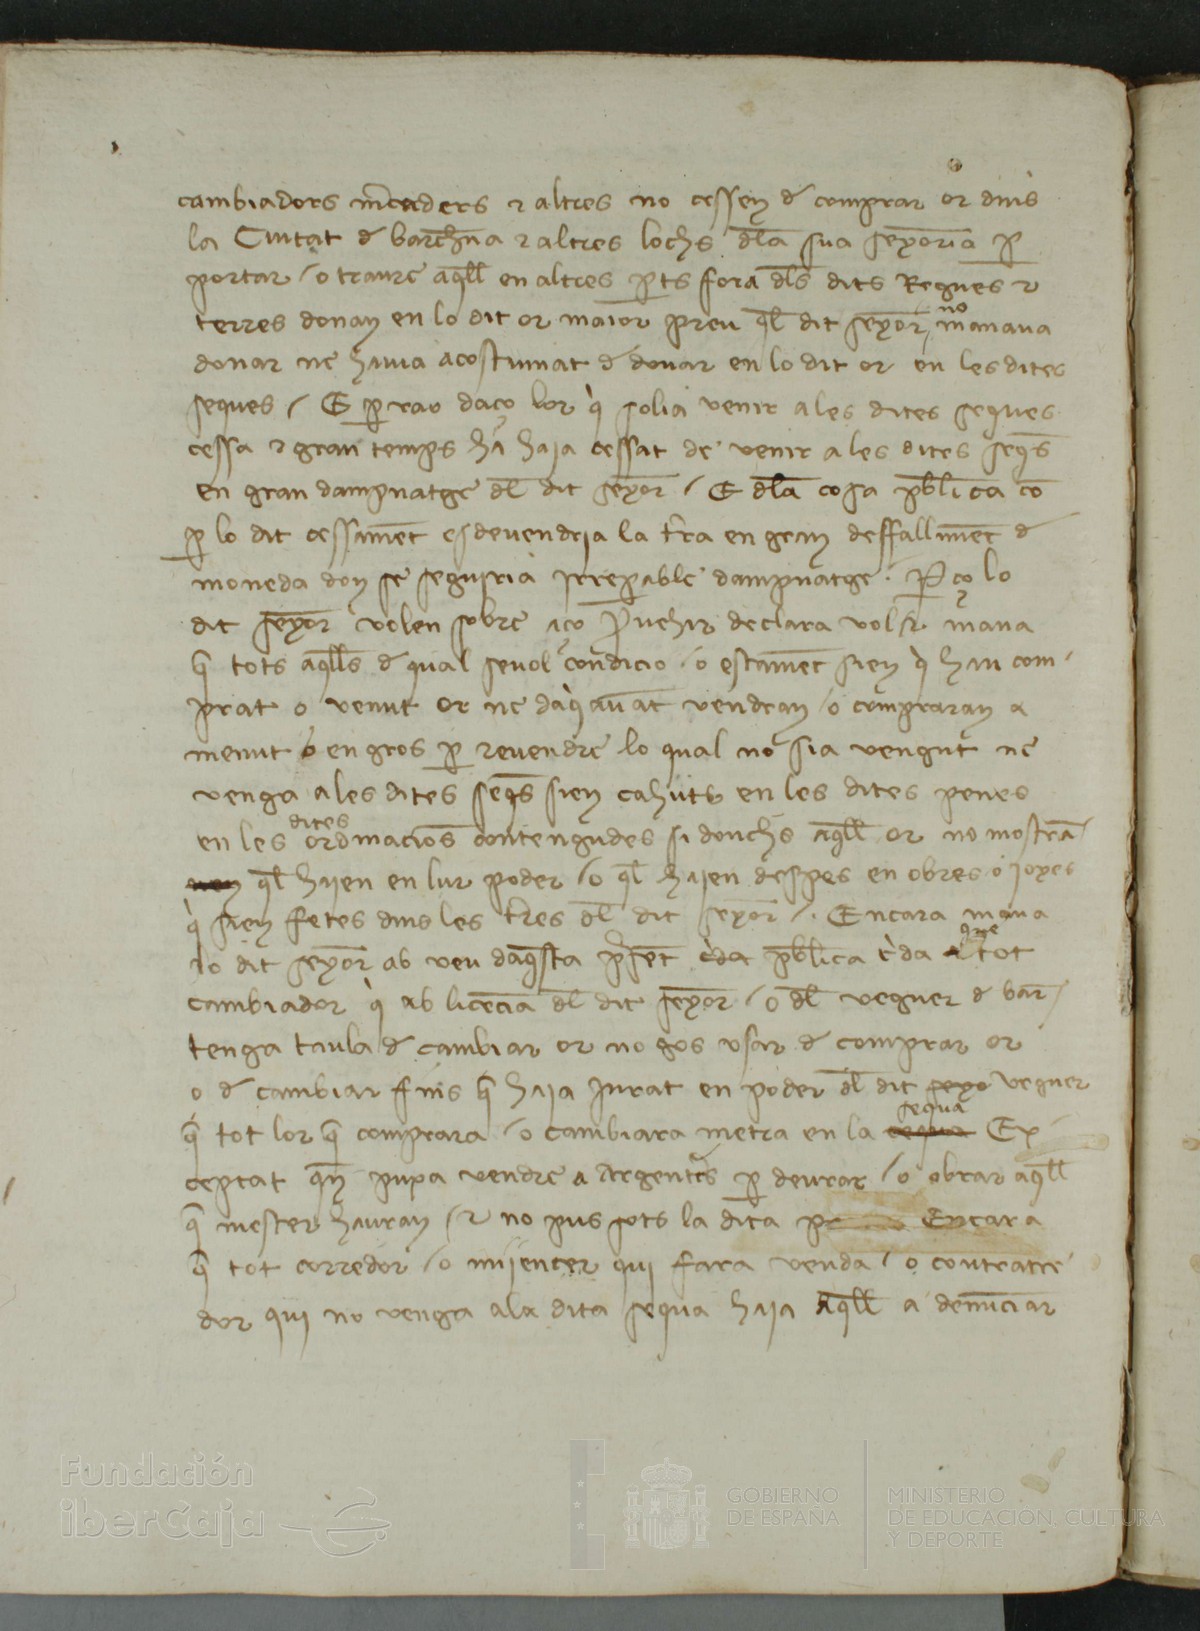 cambiadors m̄caders ⁊ altres no cessen d̄ comprar or dins
la Ciutat d̄ barch̄na ⁊ altres lochs dl̄a sua senyoria p̱
portar / o traure aq̄ll en altres p̱ts fora dl̄s dits Regnes ⁊
terres donan en lo dit or maior preu q̄l dit senyor / no manaua
donar ne hauia acostumat d̄ donar en lo dit or en les dites
seques / E p̱ rao daço lor q̇ solia venir a les dites seques
cessa ⁊ gran temps ha haia cessat de venir a les dites seq̄s
en gran dampnatge dl̄ dit senyor / E dl̄a cosa pb̄lica co̅
p̱ lo dit cessamēt esdeuendria la tr̄a en gran deffallimēt d̄
moneda don se seguiria irrep̱able dampnatge . P̱ço lo
dit senyor volen sobre aço p̄uehir declara vol ⁊ mana
q̄ tots aq̄lls d̄ qual seuol condicio / o estamēt sien q̇ hau com
prat o venut or ne daq̇ auāt vendran / o compraran a
menut o en gros p̱ reuendre lo qual no sia vengut ne
venga a les dites seq̄s sien cahuts en les dites penes
en les dites ordinacions contengudes si donchs aq̄ll or no mostrā
q̄l haien en lur poder / o q̄l haien despes en obres o joyes
q̇ sien fetes dins les tr̄es dl̄ dit senyor / . Encara mana
lo dit senyor ab veu daq̄sta p̄sēt c̀da pb̄lica c̀da que tot
cambiador q̇ ab licēcia dl̄ dit senyor / o dl̄ veguer d̄ bar̄
tenga taula d̄ cambiar or no gos vsar d̄ comprar or
o d̄ cambiar fins q̄ haia jurat en poder dl̄ dit senyo veguer
q̄ tot lor q̄ comprara / o cambiara metra en la sequa Ex
ceptat q̄n puxa vendre a Argenters p̱ deurar / o obrar aq̄ll
q̄ mester hauran / ⁊ no pus sots la dita Encara
q̄ tot corredor / o mijencer qui fara venda / o contracte
dor qui no venga a la dita sequa haia aq̄ll a denūciar
Fundación
iberCaja
GOBIERNO
DE ESPAÑA
MINISTERIO
DE EDUCACIÓN, CULTURA
Y DEPORTE